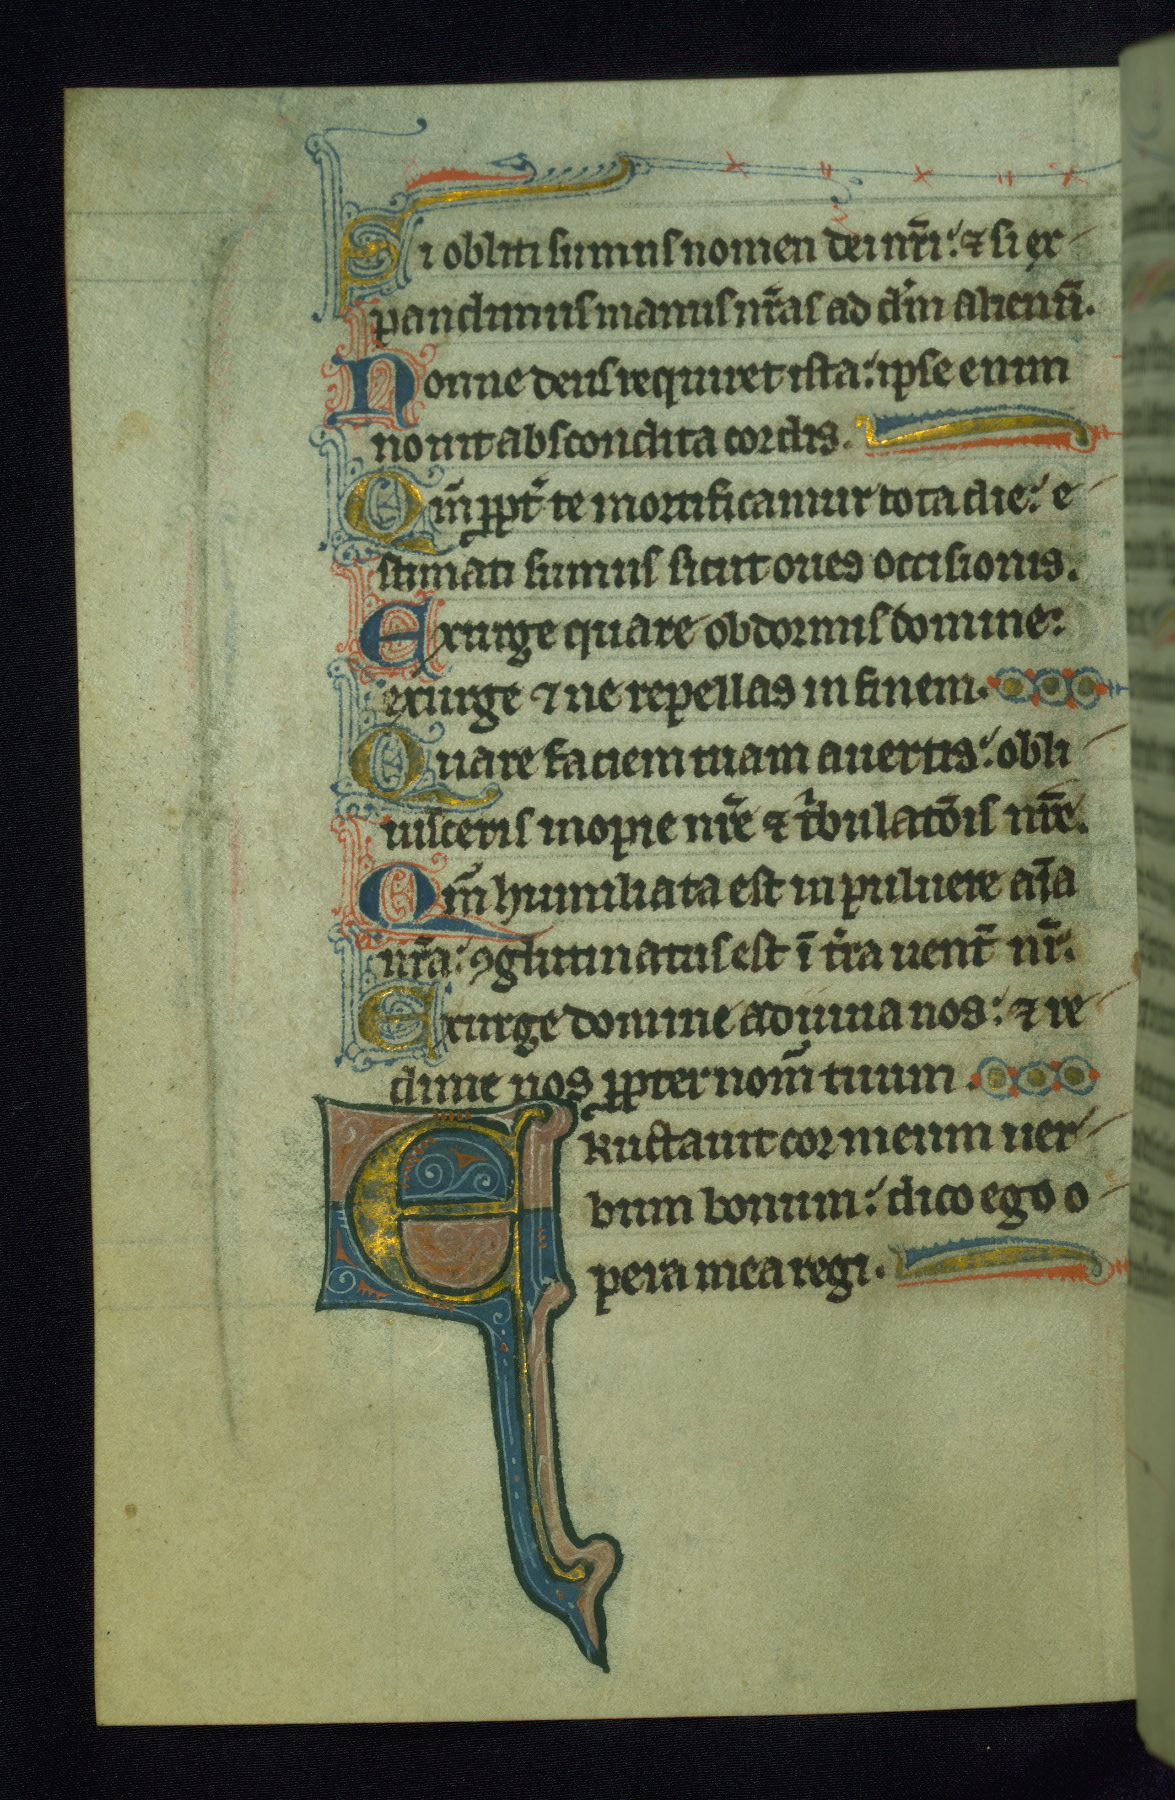 Si obliti sumus nomen dei nr̄i: ⁊ si ex
pandimus manus nr̄as ad dm̄ alienū.
Nonne deus requiret ista: ipse enim
nouit abscondita cordis.
Qm̄ ppt̄ te mortificamur tota die: e
stimati sumus sicut oues occisionis.
Exurge quare obdormis domine:
exurge ⁊ ne repellas in finem.
Quare faciem tuam auertis: obli
uisceris inopie nr̄e ⁊ tⁱbulatōis nr̄e.
Qm̄ humiliata est in puluere aīa
nr̄a: ꝯglutinatus est ī t̄ra uent̄ nr̄.
Exurge domine adiuua nos: ⁊ re
dime nos ppter nom̄ tuum.
Eructauit cor meum uer
bum bonum: dico ego o
pera mea regi.